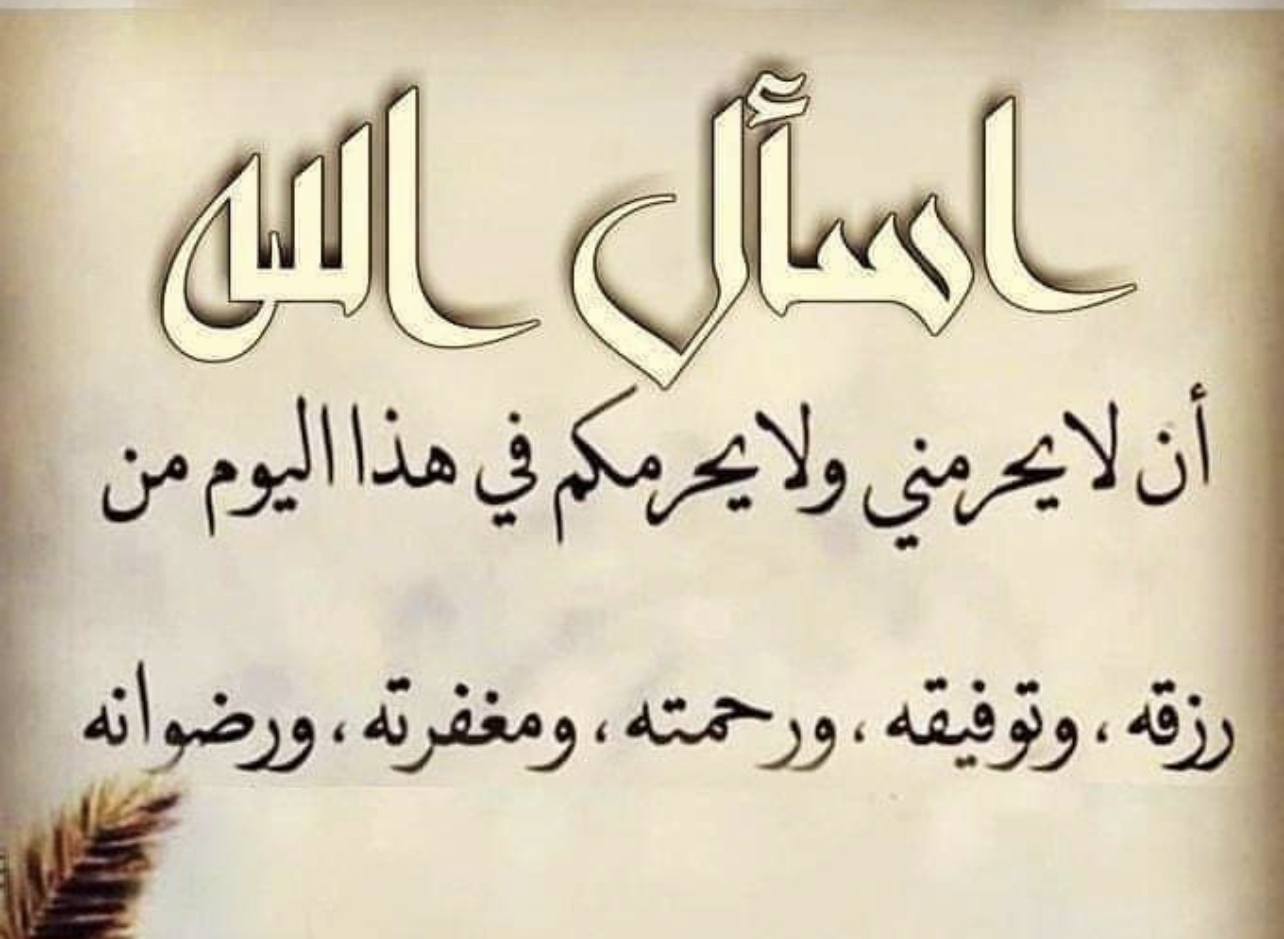 اسأل الله
أن لا يحرمني ولا يحرمكم في هذا اليوم من
رزقه ، وتوفيقه ، ورحمته ، ومغفرته ، ورضوانه